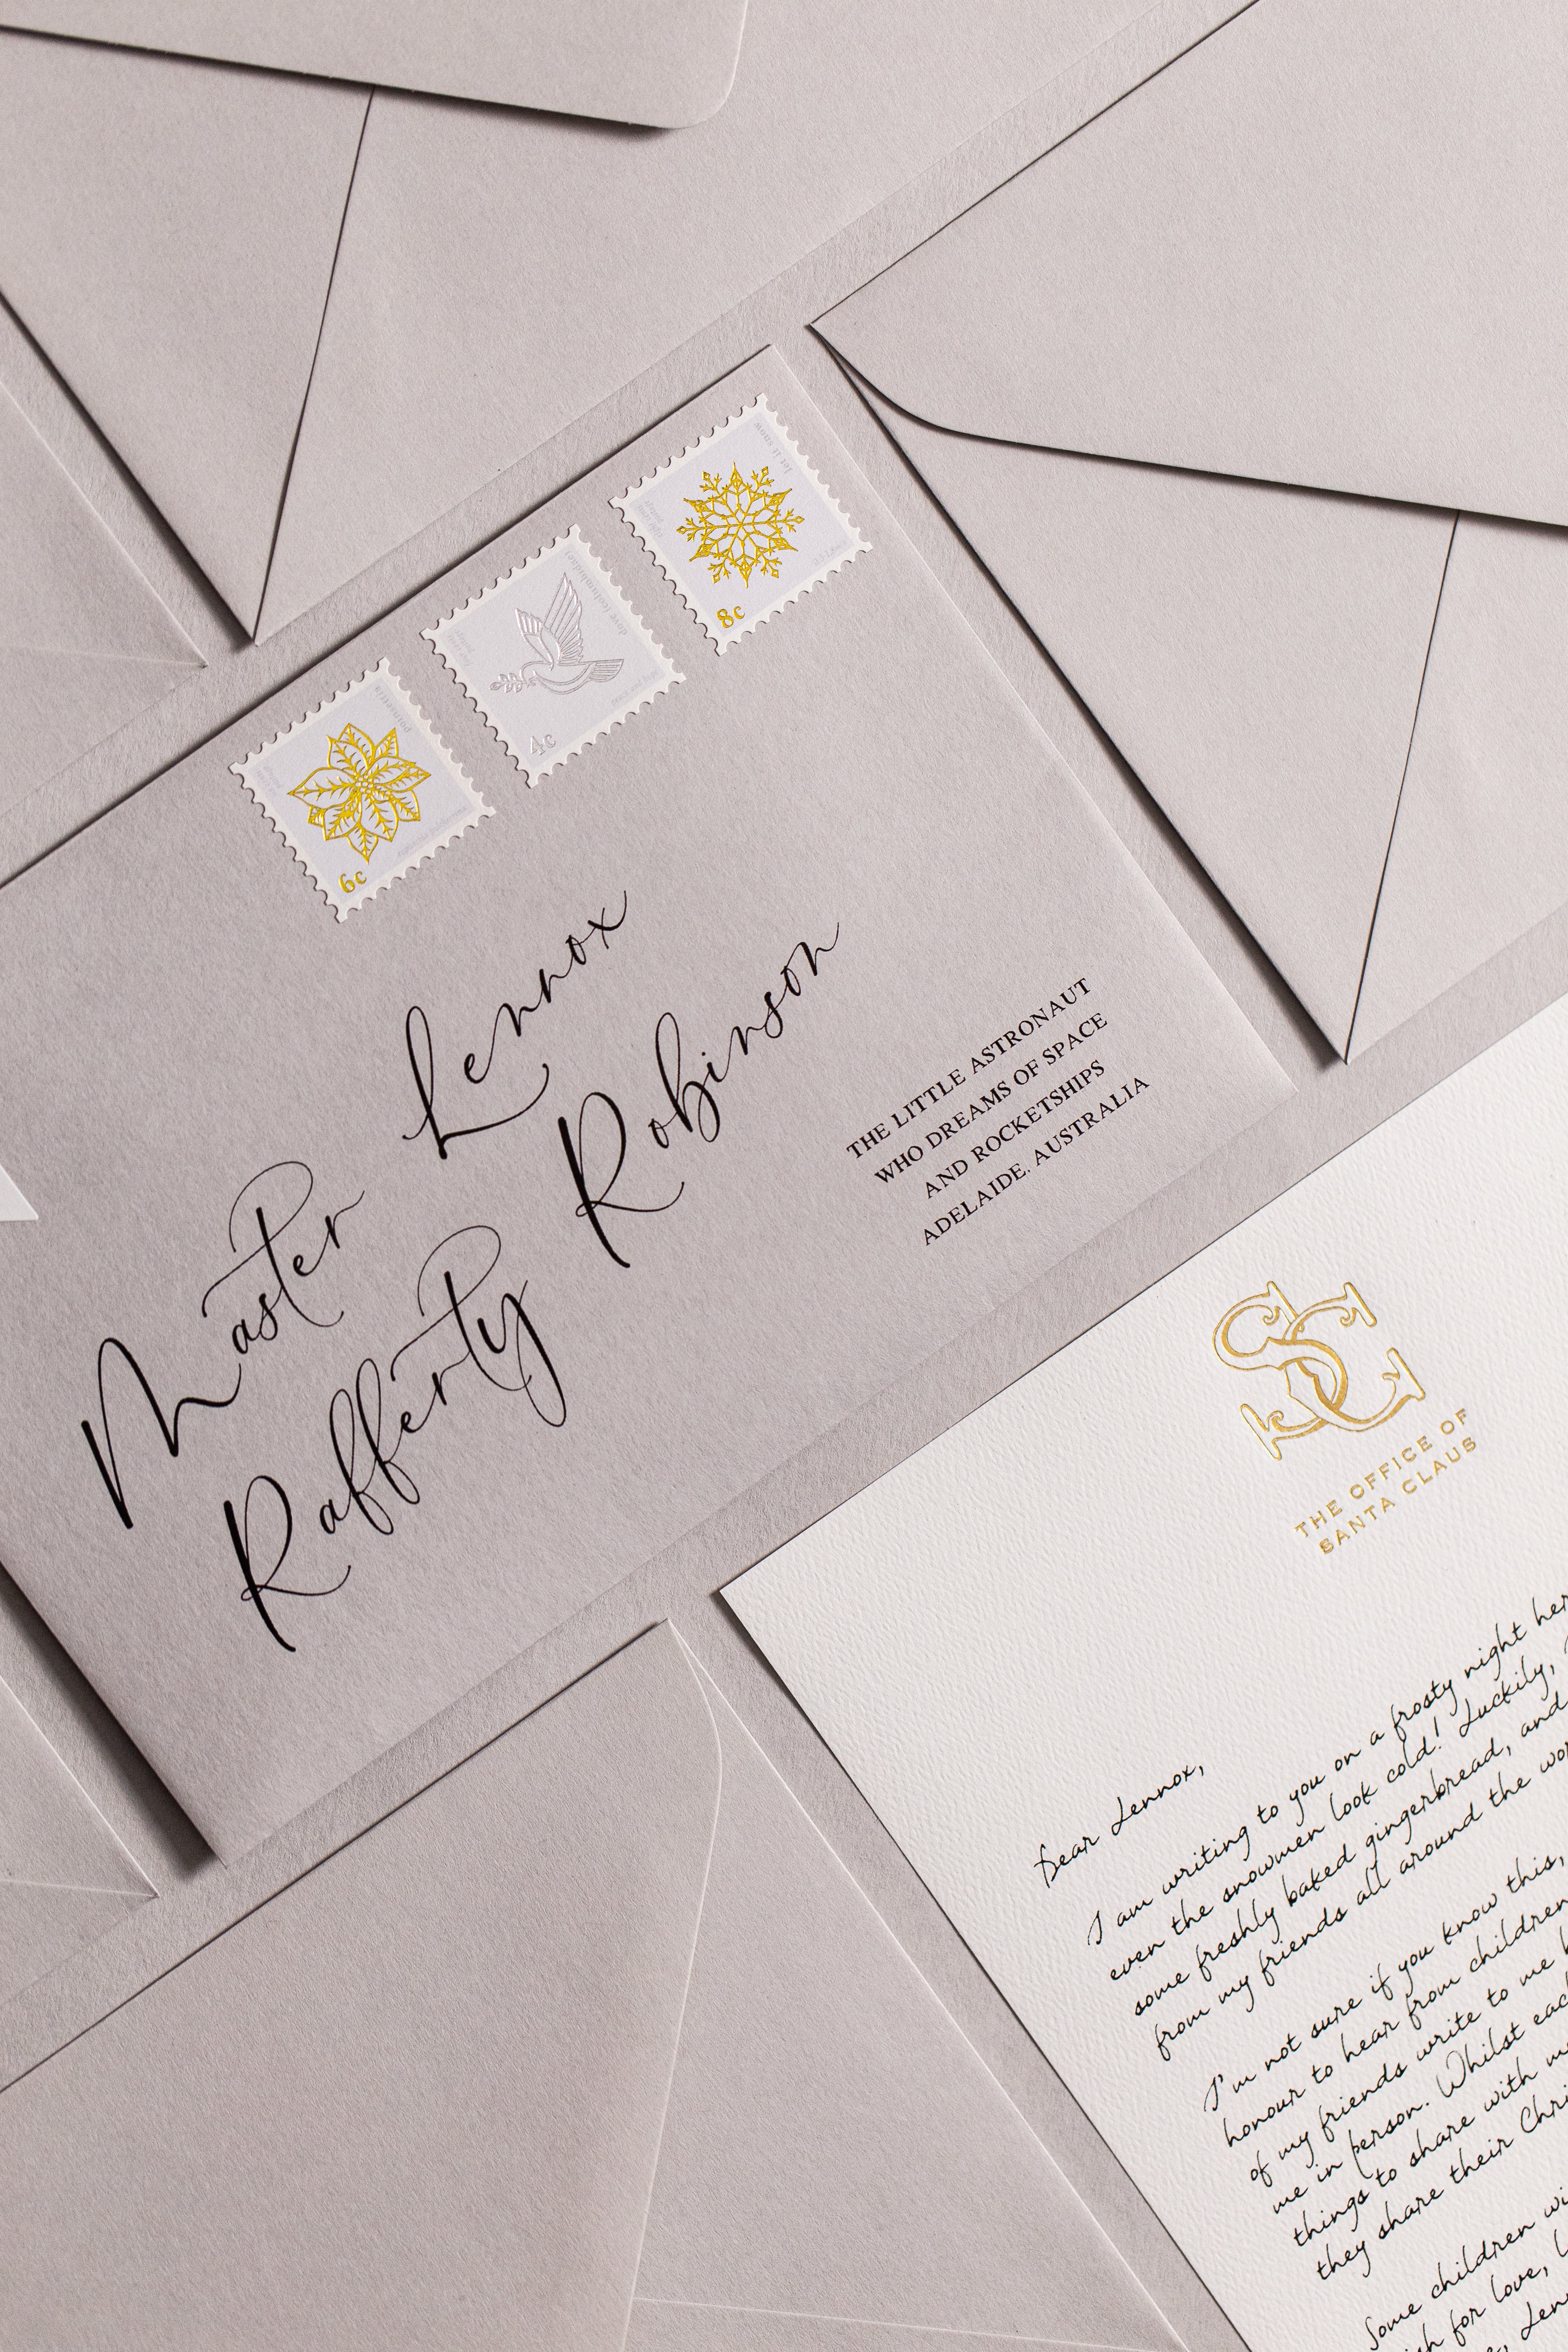 let it snow
8c
dove (columbidae)
4c
poinsettia
6c
Master Lennox
Rafferty Robinson
THE LITTLE ASTRONAUT
WHO DREAMS OF SPACE
AND ROCKETSHIPS
ADELAIDE. AUSTRALIA
SC
THE OFFICE OF
SANTA CLAUS
Dear Lennox,
I am writing to you on a frosty night
even the snowmen look cold! Luckily,
some freshly baked gingerbread, and
from my friends all around the
I'm not sure if you know this,
honour to hear from children
of my friends write to me
me in person. Whilst
things to share with
they share their
Some children
for love,